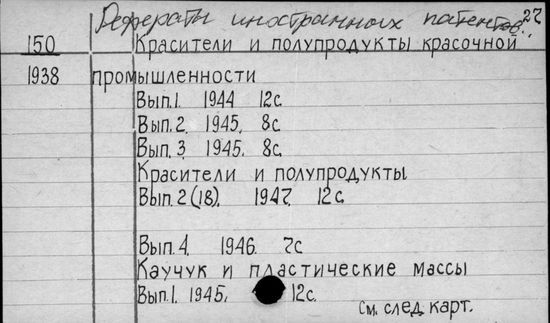 Рефераты иностранных патентов. 27
150 Красители и полупродукты красочной
1938 промышленности
Вып.1. 1944 12с.
Вып.2. 1945. 8с.
Вып.3. 1945. 8с.
Красители и полупродукты
Вып.2(18). 1947. 12с.
Вып.4. 1946. 7с
Каучук и пластические массы
Вып.1. 1945. 12с.
См. след. карт.